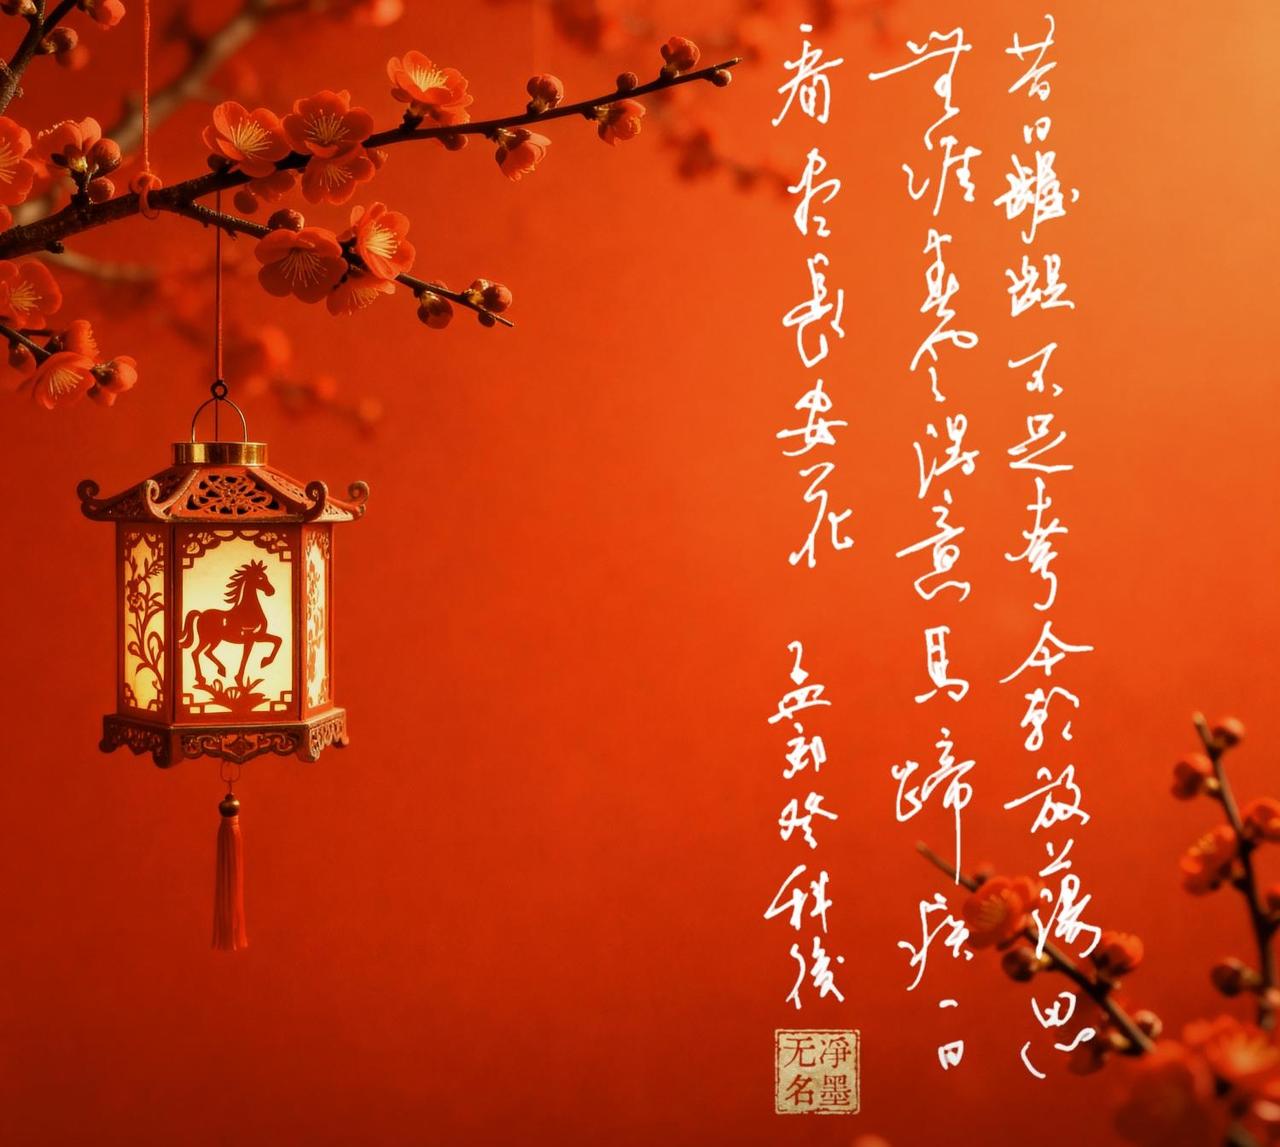 昔日齷齪不足夸今朝放蕩思
無涯春風得意馬蹄疾一日
看尽長安花 孟郊登科後
凈墨
无名